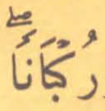 رُكْبَانًاۖ